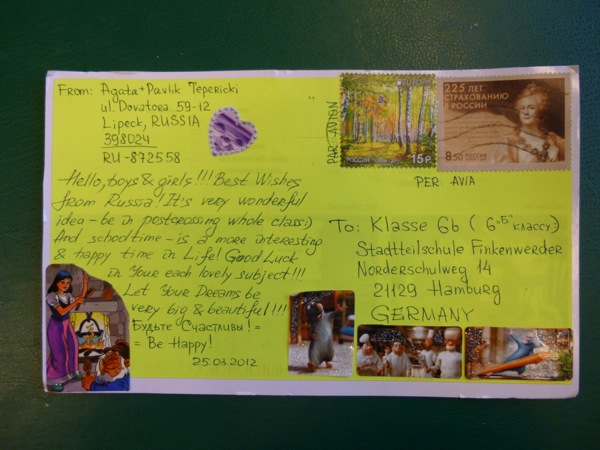 From: Agata + Pavlik Tepericki
ul. Dovatora 59-12
Lipeck, RUSSIA
398024
RU-872558
Hello, boys & girls!!! Best Wishes
from Russia! It's very wonderful
idea - be in postcrossing whole class:)
And schooltime - is a more interesting
& happy time in Life! Good Luck
in Your each lovely subject!!!
Let Your Dreams be
very big & beautiful!!!
Будьте Счастливы! =
= Be Happy!
25.03.2012
PAR AVION
РОССИЯ
15 Р
225 ЛЕТ
СТРАХОВАНИЮ
В РОССИИ
8·50 РОССИЯ
PER AVIA
To: Klasse 6b (6"Б" классу)
Stadtteilschule Finkenwerder
Norderschulweg 14
21129 Hamburg
GERMANY